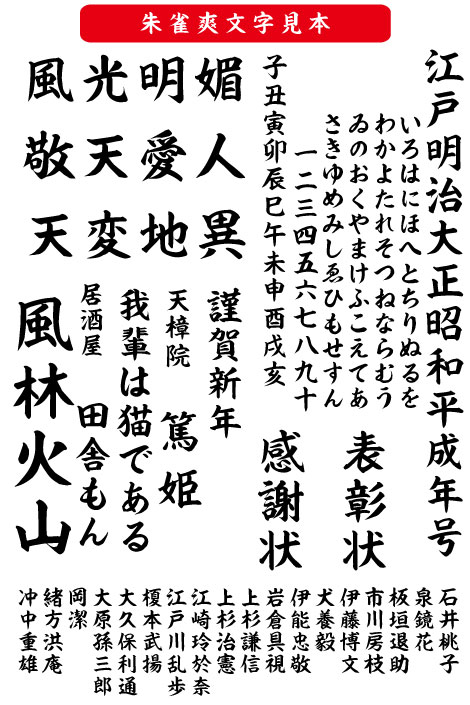 朱雀爽文字見本
江戸明治大正昭和平成年号
いろはにほへとちりぬるを
わかよたれそつねならむう
ゐのおくやまけふこえてあ
さきゆめみしゑひもせすん
一二三四五六七八九十
子丑寅卯辰巳午未申酉戌亥
表彰状
感謝状
媚人異
明愛地
光天変
風敬天
謹賀新年
天樟院 篤姫
我輩は猫である
居酒屋 田舎もん
風林火山
石井桃子
泉鏡花
板垣退助
市川房枝
伊藤博文
犬養毅
伊能忠敬
岩倉具視
上杉謙信
上杉治憲
江崎玲於奈
江戸川乱歩
榎本武揚
大久保利通
大原孫三郎
岡潔
緒方洪庵
冲中重雄